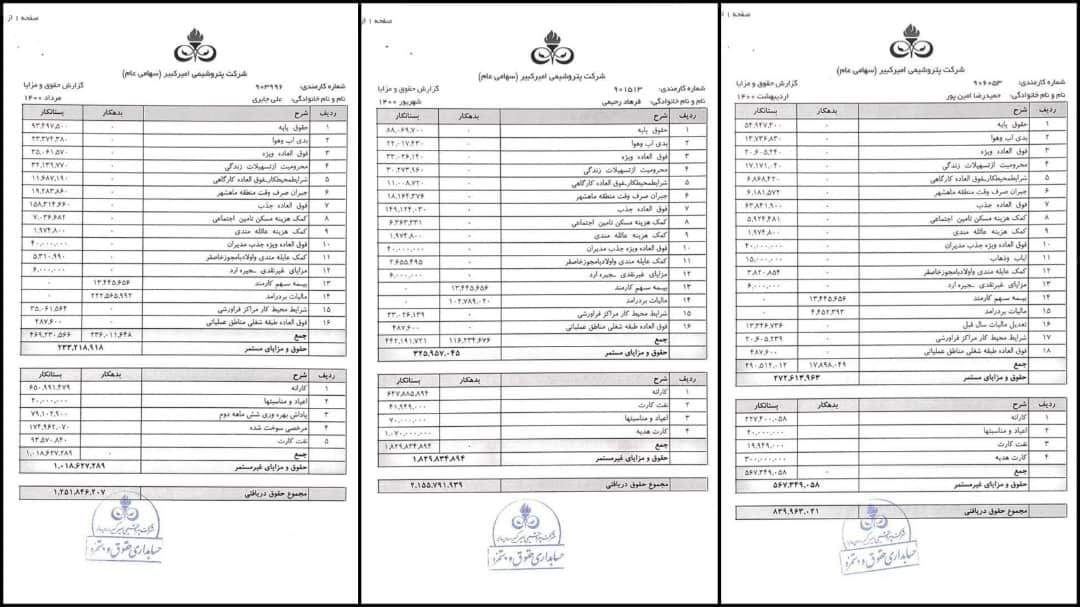 صفحه ۱ از
شرکت پتروشیمی امیرکبیر (سهامی عام)
شماره کارمندی: ۹۰۶۰۵۳ گزارش حقوق و مزایا
نام و نام خانوادگی: حمیدرضا امین پور اردیبهشت ۱۴۰۰
ردیف شرح بدهکار بستانکار
۱ حقوق پایه ۰ ۵۴,۹۴۷,۳۰۰
۲ بدی آب وهوا ۰ ۱۳,۷۳۶,۸۳۰
۳ فوق العاده ویژه ۰ ۲۰,۶۰۵,۲۴۰
۴ محرومیت ازتسهیلات زندگی ۰ ۱۷,۱۷۱,۰۴۰
۵ شرایط‌محیط‌کار_فوق العاده کارگاهی ۰ ۶,۸۶۸,۴۲۰
۶ جبران صرف وقت منطقه ماهشهر ۰ ۶,۱۸۱,۵۷۲
۷ فوق العاده جذب ۰ ۶۳,۸۴۱,۹۰۰
۸ کمک هزینه مسکن تامین اجتماعی ۰ ۵,۹۲۴,۴۸۱
۹ کمک هزینه عائله مندی ۰ ۱,۹۷۴,۸۰۰
۱۰ فوق العاده ویژه جذب مدیران ۰ ۴۰,۰۰۰,۰۰۰
۱۱ ایاب وذهاب ۰ ۱۵,۰۰۰,۰۰۰
۱۲ کمک عایله مندی واولادبامجوزخاصفر ۰ ۳,۸۲۰,۸۵۴
۱۳ مزایای غیرنقدی _جیره ارد ۰ ۶,۰۰۰,۰۰۰
۱۴ بیمه سهم کارمند ۱۳,۴۴۵,۶۵۶ ۰
۱۵ مالیات بردرامد ۴,۴۵۲,۳۹۳ ۰
۱۶ تعدیل مالیات سال قبل ۰ ۱۳,۳۴۶,۷۳۶
۱۷ شرایط محیط کار مراکز فراورشی ۰ ۲۰,۶۰۵,۲۳۹
۱۸ فوق العاده طبقه شغلی مناطق عملیاتی ۰ ۴۸۷,۶۰۰
جمع ۱۷,۸۹۸,۰۴۹ ۲۹۰,۵۱۲,۰۱۲
حقوق و مزایای مستمر ۲۷۲,۶۱۳,۹۶۳
ردیف شرح بدهکار بستانکار
۱ کارانه ۲۲۷,۴۰۰,۰۵۸
۲ اعیاد و مناسبتها ۲۰,۰۰۰,۰۰۰
۳ نفت کارت ۱۹,۹۴۹,۰۰۰
۴ کارت هدیه ۳۰۰,۰۰۰,۰۰۰
جمع ۰ ۵۶۷,۳۴۹,۰۵۸
حقوق و مزایای غیرمستمر ۵۶۷,۳۴۹,۰۵۸
مجموع حقوق دریافتی ۸۳۹,۹۶۳,۰۲۱
حسابداری حقوق و دستمزد
صفحه ۱ از
شرکت پتروشیمی امیرکبیر (سهامی عام)
شماره کارمندی: ۹۰۱۵۱۳ گزارش حقوق و مزایا
نام و نام خانوادگی: فرهاد رحیمی شهریور ۱۴۰۰
ردیف شرح بدهکار بستانکار
۱ حقوق پایه ۰ ۸۸,۰۶۹,۷۰۰
۲ بدی آب وهوا ۰ ۲۲,۰۱۷,۴۳۰
۳ فوق العاده ویژه ۰ ۳۳,۰۲۶,۱۴۰
۴ محرومیت ازتسهیلات زندگی ۰ ۳۰,۲۷۳,۹۶۰
۵ شرایط‌محیط‌کار_فوق العاده کارگاهی ۰ ۱۱,۰۰۸,۷۲۰
۶ جبران صرف وقت منطقه ماهشهر ۰ ۱۸,۱۶۴,۳۷۶
۷ فوق العاده جذب ۰ ۱۴۹,۱۲۴,۰۳۰
۸ کمک هزینه مسکن تامین اجتماعی ۰ ۶,۳۶۳,۲۳۱
۹ کمک هزینه عائله مندی ۰ ۱,۹۷۴,۸۰۰
۱۰ فوق العاده ویژه جذب مدیران ۰ ۴۰,۰۰۰,۰۰۰
۱۱ کمک عایله مندی واولادبامجوزخاصفر ۰ ۲,۶۵۵,۴۹۵
۱۲ مزایای غیرنقدی _جیره ارد ۰ ۶,۰۰۰,۰۰۰
۱۳ بیمه سهم کارمند ۱۳,۴۴۵,۶۵۶ ۰
۱۴ مالیات بردرامد ۱۰۲,۷۸۹,۰۲۰ ۰
۱۵ شرایط محیط کار مراکز فراورشی ۰ ۳۳,۰۲۶,۱۳۹
۱۶ فوق العاده طبقه شغلی مناطق عملیاتی ۰ ۴۸۷,۶۰۰
جمع ۱۱۶,۲۳۴,۶۷۶ ۴۴۲,۱۹۱,۷۲۱
حقوق و مزایای مستمر ۳۲۵,۹۵۷,۰۴۵
ردیف شرح بدهکار بستانکار
۱ کارانه ۶۴۷,۸۸۵,۸۹۴
۲ نفت کارت ۴۱,۹۴۹,۰۰۰
۳ اعیاد و مناسبتها ۷۰,۰۰۰,۰۰۰
۴ کارت هدیه ۱,۰۷۰,۰۰۰,۰۰۰
جمع ۰ ۱,۸۲۹,۸۳۴,۸۹۴
حقوق و مزایای غیرمستمر ۱,۸۲۹,۸۳۴,۸۹۴
مجموع حقوق دریافتی ۲,۱۵۵,۷۹۱,۹۳۹
حسابداری حقوق و دستمزد
صفحه ۱ از
شرکت پتروشیمی امیرکبیر (سهامی عام)
شماره کارمندی: ۹۰۳۹۹۶ گزارش حقوق و مزایا
نام و نام خانوادگی: علی جابری مرداد ۱۴۰۰
ردیف شرح بدهکار بستانکار
۱ حقوق پایه ۰ ۹۳,۴۹۷,۵۰۰
۲ بدی آب وهوا ۰ ۲۳,۳۷۴,۳۸۰
۳ فوق العاده ویژه ۰ ۳۵,۰۶۱,۵۷۰
۴ محرومیت ازتسهیلات زندگی ۰ ۳۲,۱۳۹,۷۷۰
۵ شرایط‌محیط‌کار_فوق العاده کارگاهی ۰ ۱۱,۶۸۷,۱۹۰
۶ جبران صرف وقت منطقه ماهشهر ۰ ۱۹,۲۸۳,۸۶۰
۷ فوق العاده جذب ۰ ۱۵۸,۳۱۴,۶۶۰
۸ کمک هزینه مسکن تامین اجتماعی ۰ ۷,۰۳۶,۶۸۲
۹ کمک هزینه عائله مندی ۰ ۱,۹۷۴,۸۰۰
۱۰ فوق العاده ویژه جذب مدیران ۰ ۴۰,۰۰۰,۰۰۰
۱۱ کمک عایله مندی واولادبامجوزخاصفر ۰ ۵,۳۱۰,۹۹۰
۱۲ مزایای غیرنقدی _جیره ارد ۰ ۶,۰۰۰,۰۰۰
۱۳ بیمه سهم کارمند ۱۳,۴۴۵,۶۵۶ ۰
۱۴ مالیات بردرامد ۲۲۲,۵۶۵,۹۹۲ ۰
۱۵ شرایط محیط کار مراکز فراورشی ۰ ۳۵,۰۶۱,۵۶۴
۱۶ فوق العاده طبقه شغلی مناطق عملیاتی ۰ ۴۸۷,۶۰۰
جمع ۲۳۶,۰۱۱,۶۴۸ ۴۶۹,۲۳۰,۵۶۶
حقوق و مزایای مستمر ۲۳۳,۲۱۸,۹۱۸
ردیف شرح بدهکار بستانکار
۱ کارانه ۶۵۰,۹۹۱,۴۷۹
۲ اعیاد و مناسبتها ۲۰,۰۰۰,۰۰۰
۳ پاداش بهره وری شش ماهه دوم ۷۹,۱۰۲,۹۰۰
۴ مرخصی سوخت شده ۱۷۴,۹۶۲,۰۷۰
۵ نفت کارت ۹۳,۵۷۰,۸۴۰
جمع ۰ ۱,۰۱۸,۶۲۷,۲۸۹
حقوق و مزایای غیرمستمر ۱,۰۱۸,۶۲۷,۲۸۹
مجموع حقوق دریافتی ۱,۲۵۱,۸۴۶,۲۰۷
حسابداری حقوق و دستمزد